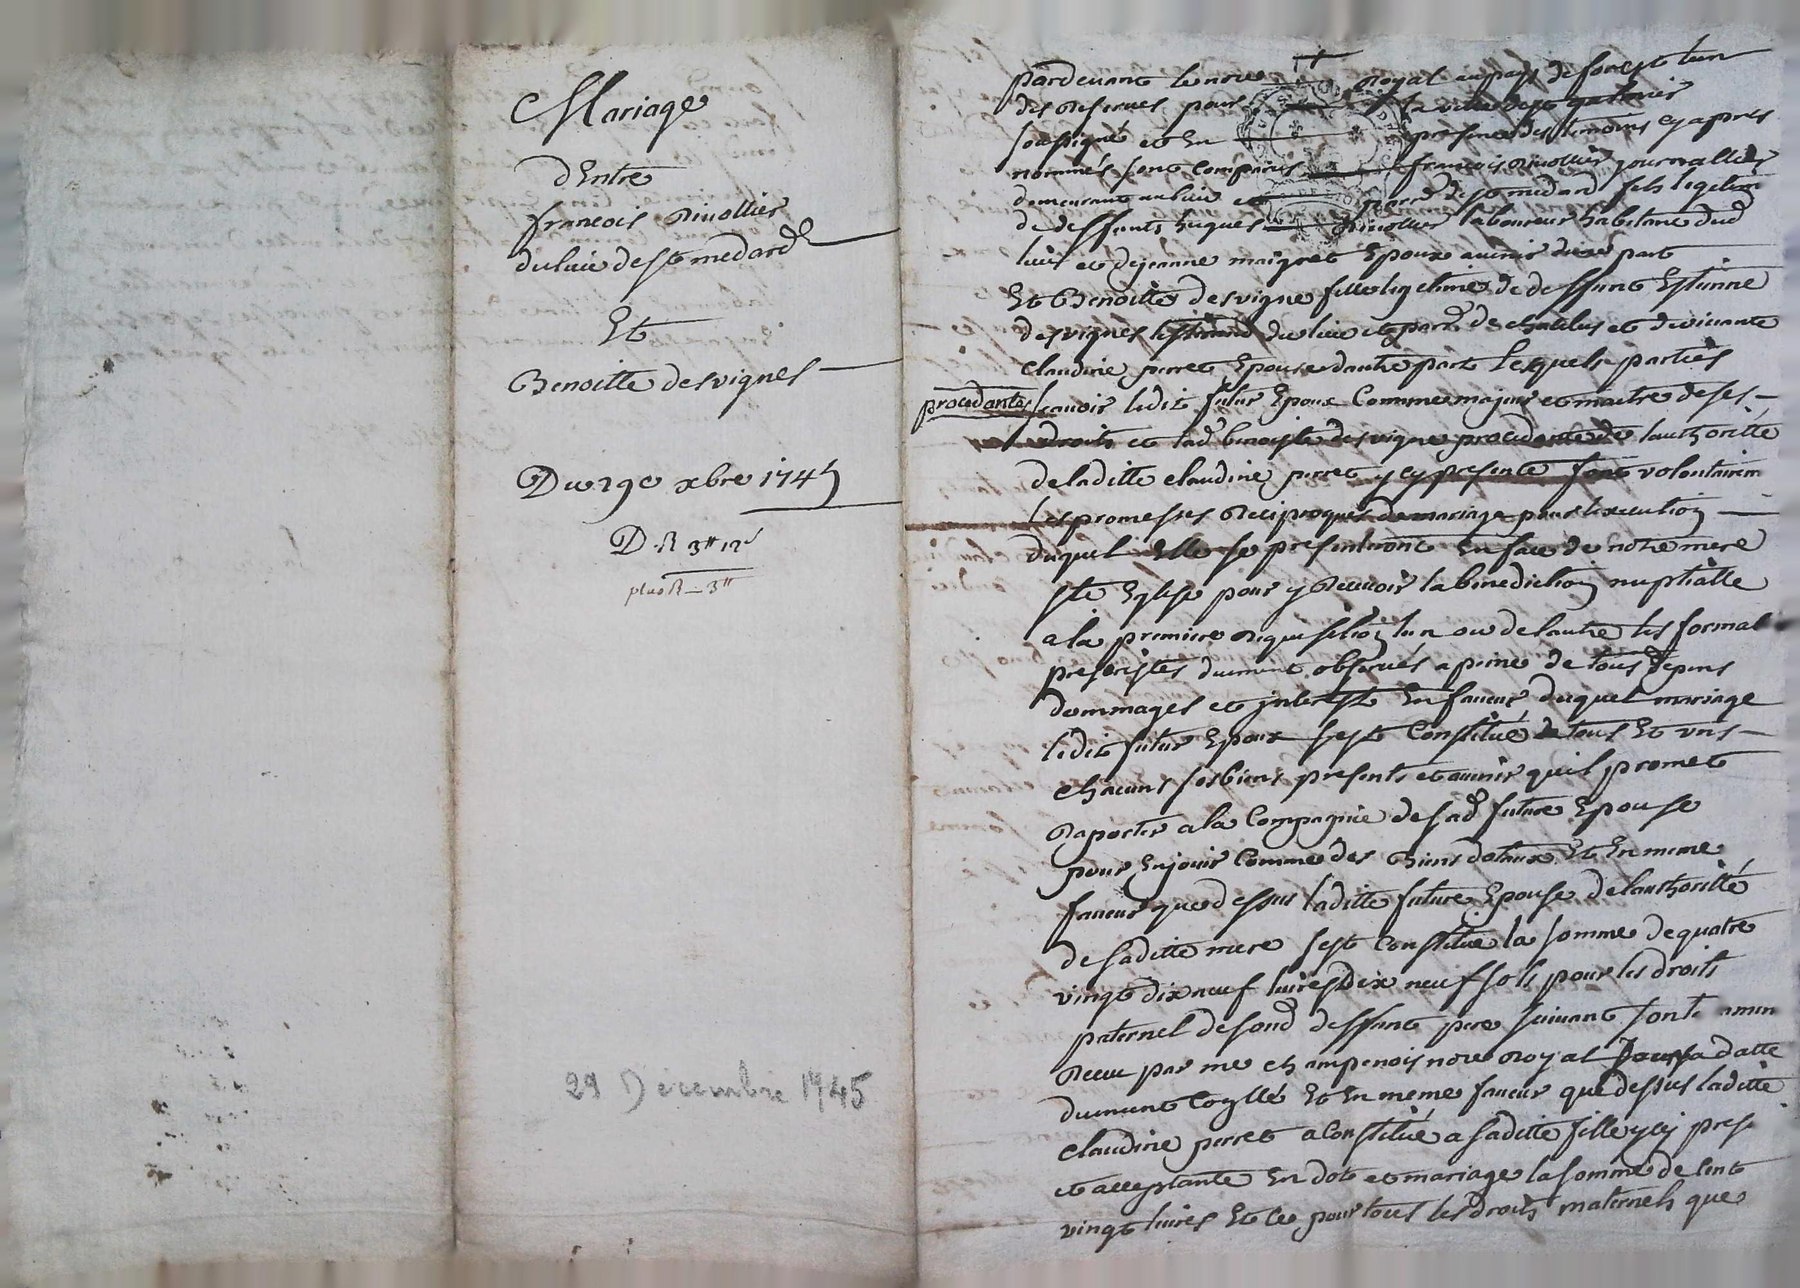 Mariage
d'Entre
françois Rivollier
du lieu de st medard
Et
Benoitte desvignes
Du 29e xbre 1745
D. R 3# 12s
plus R 3#
29 Décembre 1745
pardevant le nore Royal au pays de forest lun
des Reserves pour la ville de st galmier
soussigné et En presence des temoins cy apres
nommés sont comparus françois Rivollier journallier
demeurant au lieu et parr de st medard fils legitime
de deffunts hugues Rivollier laboureur habitant dud
lieu et de jeanne maigret Epoux avenir dune part
Et Benoitte desvigne fille legitime de deffunt Estienne
desvignes du lieu et parr de chatelus et de vivante
claudine perret Epouse dautre part Lesquels parties
procedantes scavoir ledit futur Epoux Comme majeur et maitre de ses
droits et lad benoiste desvigne procedante de lauthoritté
de laditte claudine perret y cy presente font volontairem
Les promesses Reciproques de mariage pour lexecution
duquel Elle se presenteront En face de notre mere
ste Eglise pour y Recevoir la benediction nuptialle
a la premiere Requisition lun ou de lautre les formal
prescristes duement observés a peine de tous depens
dommages et interest En faveur duquel mariage
ledit futur Epoux sest Constitué de tous Et uns
chacuns ses biens presents et avenir quil promet
Raporter a la Compagnie de sad future Epouse
pour En jouir Comme des Biens dotaux Et En meme
faveur que dessus laditte future Epouse de lauthoritté
de saditte mere sest Constitué la somme de quatre
vingt dix neuf livres dix neuf sols pour les droits
paternel de sond deffunt pere suivant
Receu par me champenois nore Royal sa datte
duement Et En meme faveur que dessus laditte
claudine perret a Constitué a saditte fille y cy prese
et acceptante En dot et mariage la somme de Cent
vingt livres Et Ce pour tous les droits maternels que